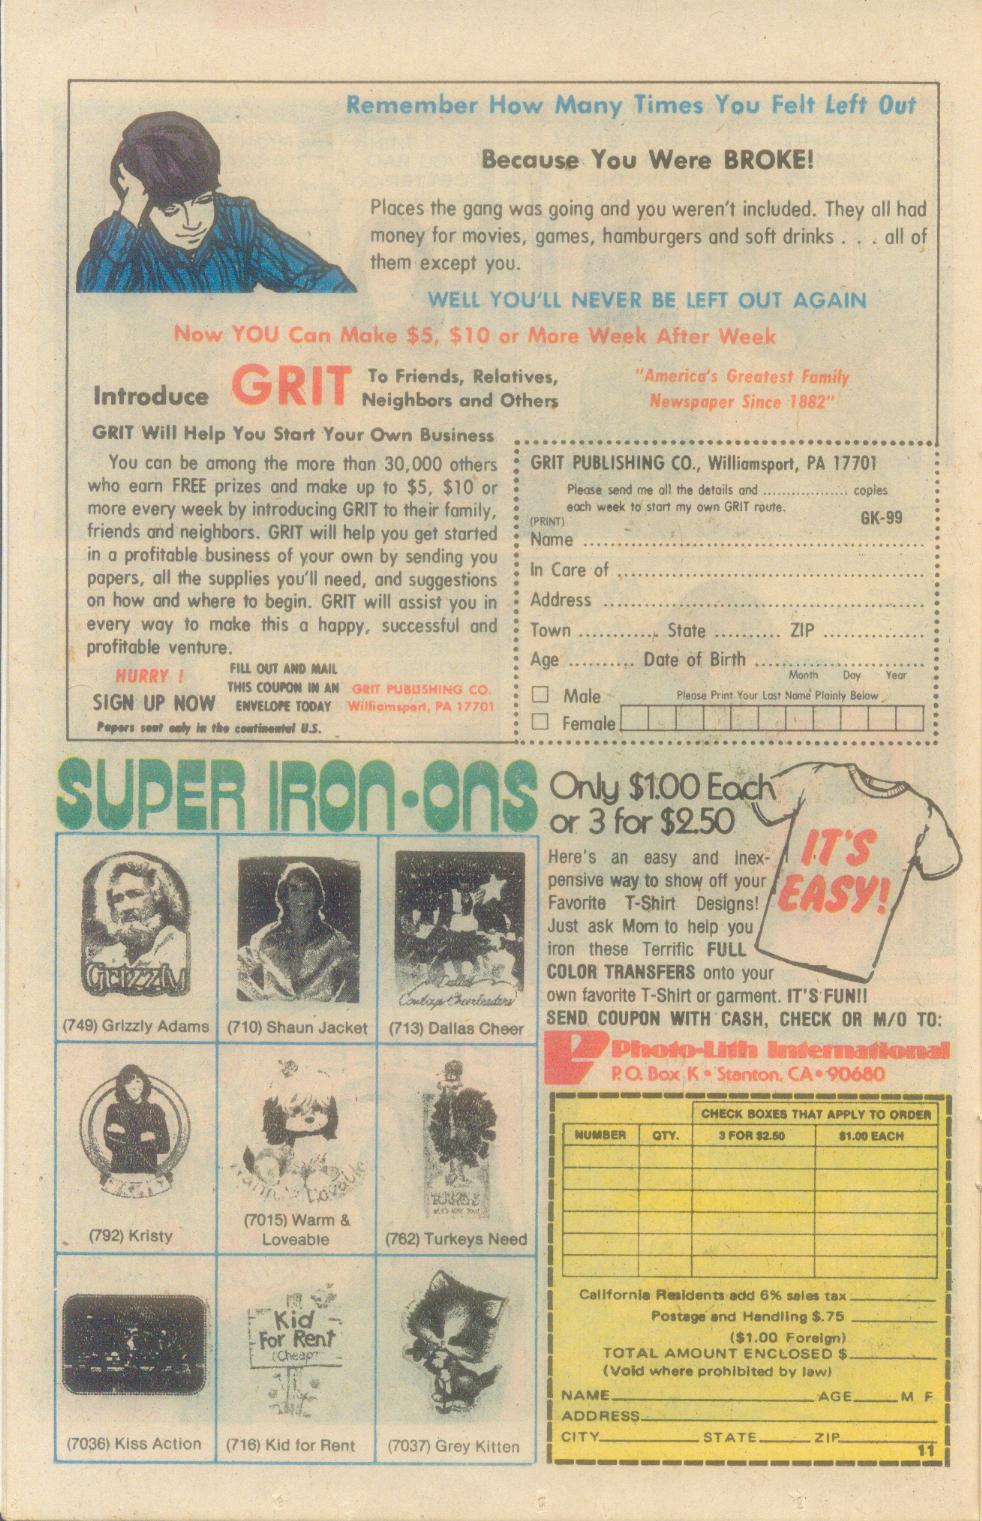 Remember How Many Times You Felt Left Out
Because You Were BROKE!
Places the gang was going and you weren't included. They all had
money for movies, games, hamburgers and soft drinks . . . all of
them except you.
WELL YOU'LL NEVER BE LEFT OUT AGAIN
Now YOU Can Make $5, $10 or More Week After Week
Introduce GRIT To Friends, Relatives,
Neighbors and Others
"America's Greatest Family
Newspaper Since 1882"
GRIT Will Help You Start Your Own Business
You can be among the more than 30,000 others
who earn FREE prizes and make up to $5, $10 or
more every week by introducing GRIT to their family,
friends and neighbors. GRIT will help you get started
in a profitable business of your own by sending you
papers, all the supplies you'll need, and suggestions
on how and where to begin. GRIT will assist you in
every way to make this a happy, successful and
profitable venture.
HURRY !
SIGN UP NOW
FILL OUT AND MAIL
THIS COUPON IN AN
ENVELOPE TODAY
GRIT PUBLISHING CO.
Williamsport, PA 17701
Papers sent only in the continental U.S.
GRIT PUBLISHING CO., Williamsport, PA 17701
Please send me all the details and .................. copies
each week to start my own GRIT route.
GK-99
(PRINT)
Name
In Care of
Address
Town ........... State .......... ZIP
Age .......... Date of Birth
Month Day Year
Male
Please Print Your Last Name Plainly Below
Female
SUPER IRON-ONS
Grizzly
(749) Grizzly Adams
(710) Shaun Jacket
Dallas
Cowboys Cheerleaders
(713) Dallas Cheer
KRISTY
(792) Kristy
Warm & Lovable
(7015) Warm &
Loveable
(762) Turkeys Need
(7036) Kiss Action
Kid
For Rent
(Cheap)
(716) Kid for Rent
(7037) Grey Kitten
Only $1.00 Each
or 3 for $2.50
IT'S
EASY!
Here's an easy and inex-
pensive way to show off your
Favorite T-Shirt Designs!
Just ask Mom to help you
iron these Terrific FULL
COLOR TRANSFERS onto your
own favorite T-Shirt or garment. IT'S FUN!!
SEND COUPON WITH CASH, CHECK OR M/O TO:
Photo-Lith International
P.O. Box K • Stanton, CA • 90680
CHECK BOXES THAT APPLY TO ORDER
NUMBER QTY. 3 FOR $2.50 $1.00 EACH
California Residents add 6% sales tax
Postage and Handling $.75
($1.00 Foreign)
TOTAL AMOUNT ENCLOSED $
(Void where prohibited by law)
NAME AGE M F
ADDRESS
CITY STATE ZIP
11